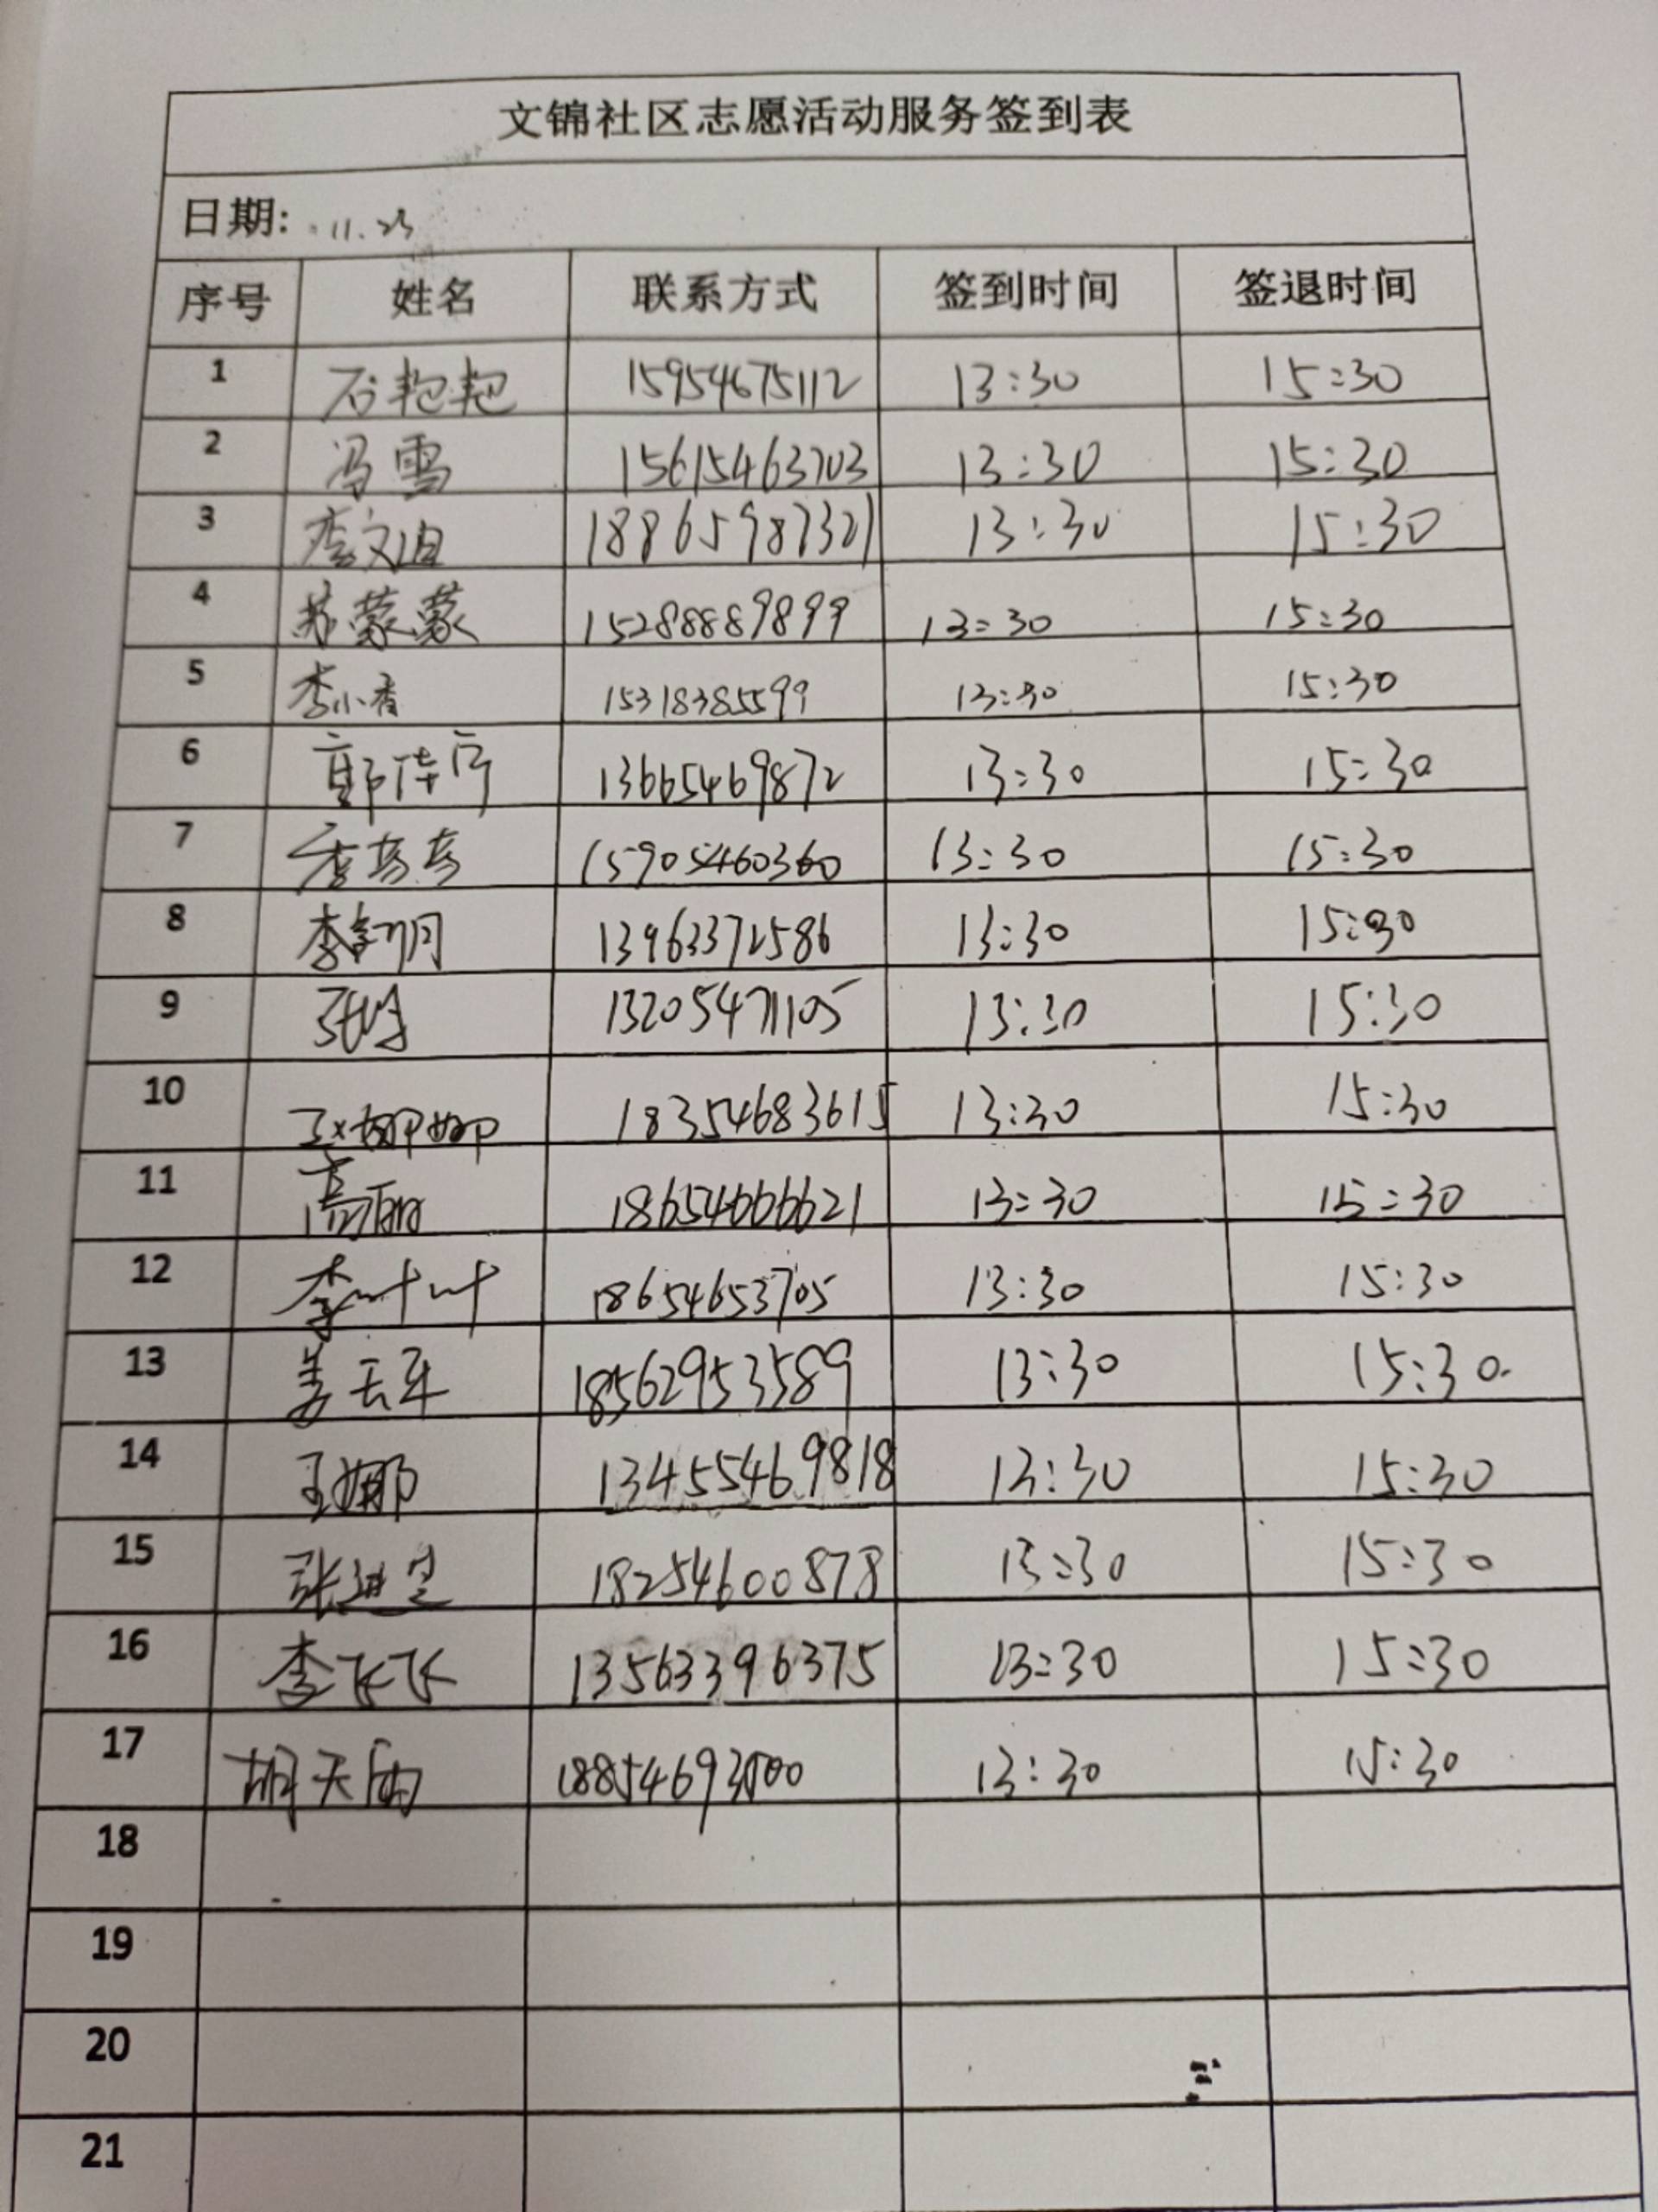 文锦社区志愿活动服务签到表
日期: 11.23
序号 姓名 联系方式 签到时间 签退时间
1 石艳艳 15954675112 13:30 15:30
2 冯雪 15615463703 13:30 15:30
3 李文迪 18865987321 13:30 15:30
4 苏蒙蒙 15288889899 13:30 15:30
5 李小香 15318385599 13:30 15:30
6 13665469872 13:30 15:30
7 李彦彦 15905460360 13:30 15:30
8 13963372586 13:30 15:30
9 13205471105 13:30 15:30
10 18354683615 13:30 15:30
11 高丽 18654666621 13:30 15:30
12 李叶叶 18654653705 13:30 15:30
13 姜玉军 18562953589 13:30 15:30
14 王娜 13455469818 13:30 15:30
15 18254600878 13:30 15:30
16 李飞飞 13563396375 13:30 15:30
17 胡天雨 18854693500 13:30 15:30
18
19
20
21